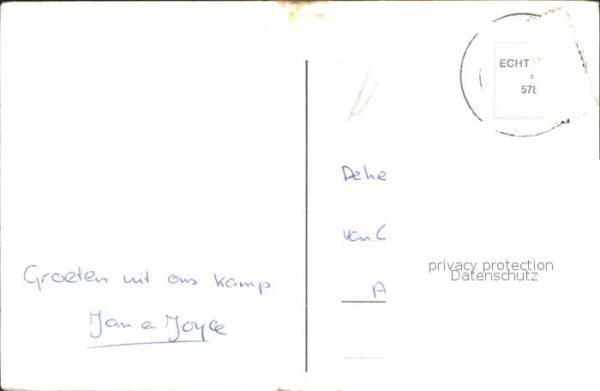 ECHT
578
Dehe
van C
A
privacy protection
Datenschutz
Groeten uit ons kamp
Jan en Joyce